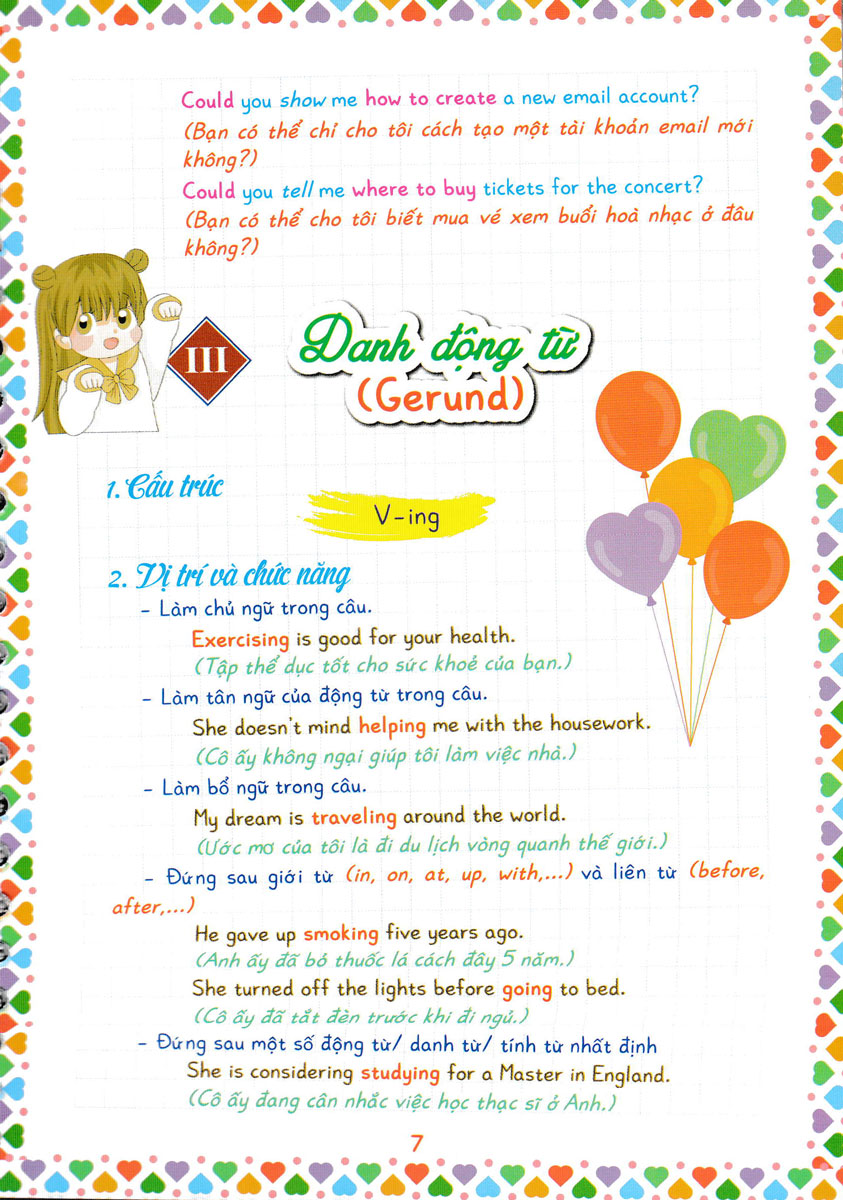 Could you show me how to create a new email account?
(Bạn có thể chỉ cho tôi cách tạo một tài khoản email mới
không?)
Could you tell me where to buy tickets for the concert?
(Bạn có thể cho tôi biết mua vé xem buổi hoà nhạc ở đâu
không?)
III
Danh động từ
(Gerund)
1. Cấu trúc
V-ing
2. Vị trí và chức năng
- Làm chủ ngữ trong câu.
Exercising is good for your health.
(Tập thể dục tốt cho sức khoẻ của bạn.)
- Làm tân ngữ của động từ trong câu.
She doesn't mind helping me with the housework.
(Cô ấy không ngại giúp tôi làm việc nhà.)
- Làm bổ ngữ trong câu.
My dream is traveling around the world.
(Ước mơ của tôi là đi du lịch vòng quanh thế giới.)
- Đứng sau giới từ (in, on, at, up, with,...) và liên từ (before,
after,...)
He gave up smoking five years ago.
(Anh ấy đã bỏ thuốc lá cách đây 5 năm.)
She turned off the lights before going to bed.
(Cô ấy đã tắt đèn trước khi đi ngủ.)
- Đứng sau một số động từ/ danh từ/ tính từ nhất định
She is considering studying for a Master in England.
(Cô ấy đang cân nhắc việc học thạc sĩ ở Anh.)
7